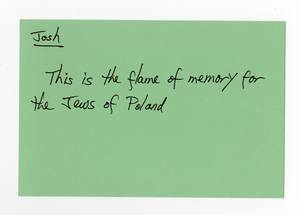 Josh
This is the flame of memory for
the Jews of Poland